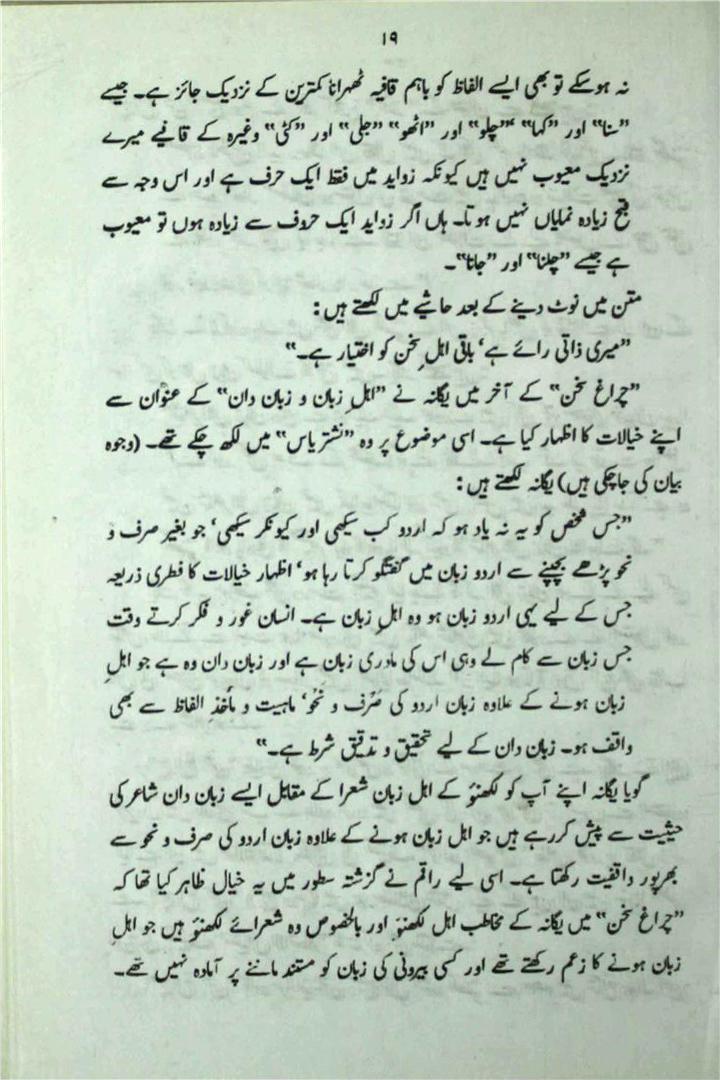 ۱۹
نہ ہو سکے تو بھی ایسے الفاظ کو باہم قافیہ ٹھہرانا کمترین کے نزدیک جائز ہے۔ جیسے
”سنا“ اور ”کہا“ ”چلو“ اور ”اٹھو“ ”جلی“ اور ”کٹی“ وغیرہ کے قافیے میرے
نزدیک معیوب نہیں ہیں کیونکہ زواید میں فقط ایک حرف ہے اور اس وجہ سے
قبح زیادہ نمایاں نہیں ہوتا۔ ہاں اگر زواید ایک حروف سے زیادہ ہوں تو معیوب
ہے جیسے ”چلنا“ اور ”جانا“۔
متن میں نوٹ دینے کے بعد حاشیے میں لکھتے ہیں:
”میری ذاتی رائے ہے، باقی اہلِ سخن کو اختیار ہے۔“
”چراغ سخن“ کے آخر میں یگانہ نے ”اہلِ زبان و زبان دان“ کے عنوان سے
اپنے خیالات کا اظہار کیا ہے۔ اسی موضوع پر وہ ”نشتر یاس“ میں لکھ چکے تھے۔ (وجوہ
بیان کی جا چکی ہیں) یگانہ لکھتے ہیں:
”جس شخص کو یہ نہ یاد ہو کہ اردو کب سیکھی اور کیونکر سیکھی، جو بغیر صرف و
نحو پڑھے بچپنے سے اردو زبان میں گفتگو کرتا رہا ہو، اظہار خیالات کا فطری ذریعہ
جس کے لیے یہی اردو زبان ہو وہ اہلِ زبان ہے۔ انسان غور و فکر کرتے وقت
جس زبان سے کام لے وہی اس کی مادری زبان ہے اور زبان دان وہ ہے جو اہلِ
زبان ہونے کے علاوہ زبان اردو کی صَرف و نحو، ماہیت و مأخذِ الفاظ سے بھی
واقف ہو۔ زبان دان کے لیے تحقیق و تدقیق شرط ہے۔“
گویا یگانہ اپنے آپ کو لکھنؤ کے اہل زبان شعرا کے مقابل ایسے زبان دان شاعر کی
حیثیت سے پیش کر رہے ہیں جو اہل زبان ہونے کے علاوہ زبان اردو کی صرف و نحو سے
بھرپور واقفیت رکھتا ہے۔ اسی لیے راقم نے گزشتہ سطور میں یہ خیال ظاہر کیا تھا کہ
”چراغ سخن“ میں یگانہ کے مخاطب اہل لکھنؤ اور بالخصوص وہ شعرائے لکھنؤ ہیں جو اہلِ
زبان ہونے کا زعم رکھتے تھے اور کسی بیرونی کی زبان کو مستند ماننے پر آمادہ نہیں تھے۔